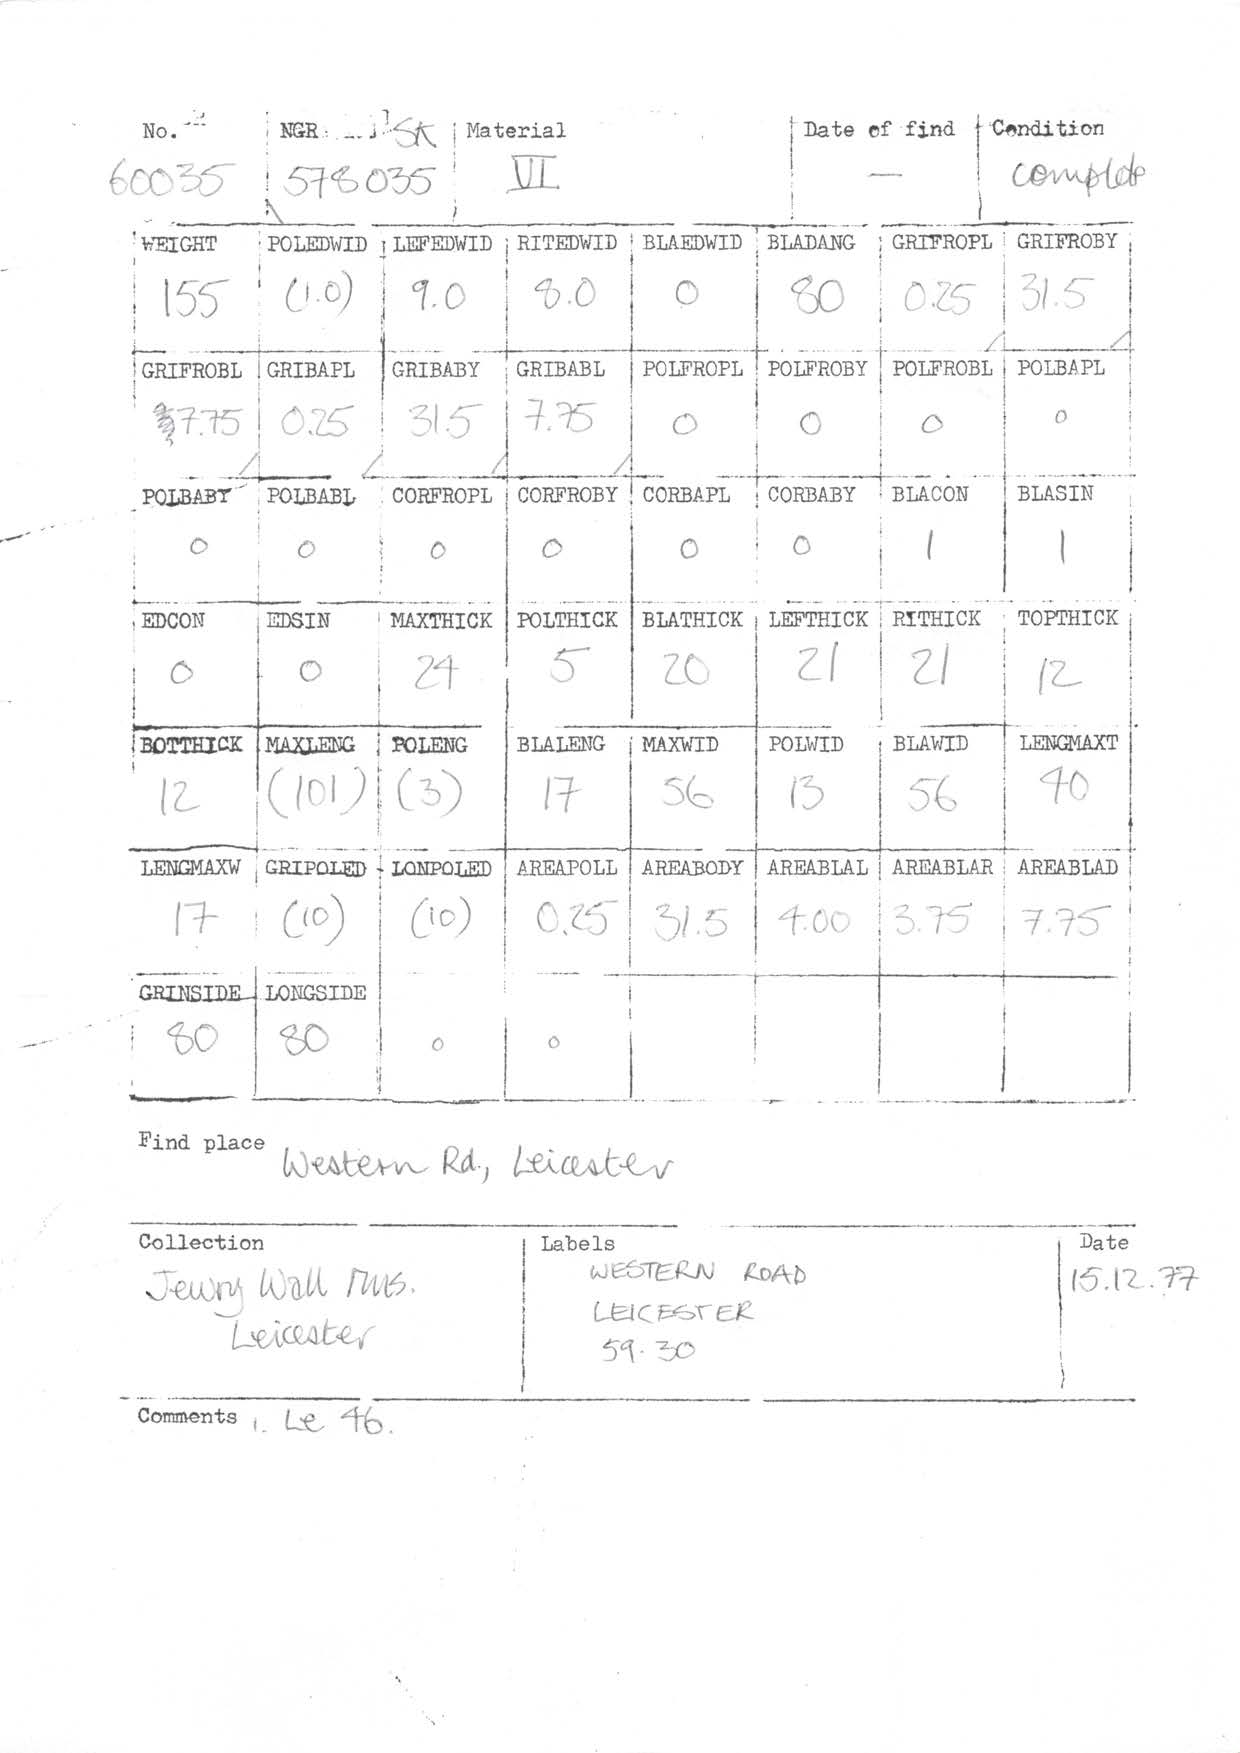 No. NGR SK Material Date of find Condition
60035 578035 VI — complete
WEIGHT POLEDWID LEFEDWID RITEDWID BLAEDWID BLADANG GRIFROPL GRIFROBY
155 (1.0) 9.0 8.0 0 80 0.25 31.5
GRIFROBL GRIBAPL GRIBABY GRIBABL POLFROPL POLFROBY POLFROBL POLBAPL
7.75 0.25 31.5 7.75 0 0 0 0
POLBABY POLBABL CORFROPL CORFROBY CORBAPL CORBABY BLACON BLASIN
0 0 0 0 0 0 1 1
EDCON EDSIN MAXTHICK POLTHICK BLATHICK LEFTHICK RITHICK TOPTHICK
0 0 24 5 20 21 21 12
BOTTHICK MAXLENG POLENG BLALENG MAXWID POLWID BLAWID LENGMAXT
12 (101) (3) 17 56 13 56 40
LENGMAXW GRIPOLED LONPOLED AREAPOLL AREABODY AREABLAL AREABLAR AREABLAD
17 (10) (10) 0.25 31.5 4.00 3.75 7.75
GRINSIDE LONGSIDE
80 80 0 0
Find place Western Rd., Leicester
Collection Labels Date
Jewry Wall Mus. WESTERN ROAD 15.12.77
Leicester LEICESTER
59.30
Comments 1. Le 46.